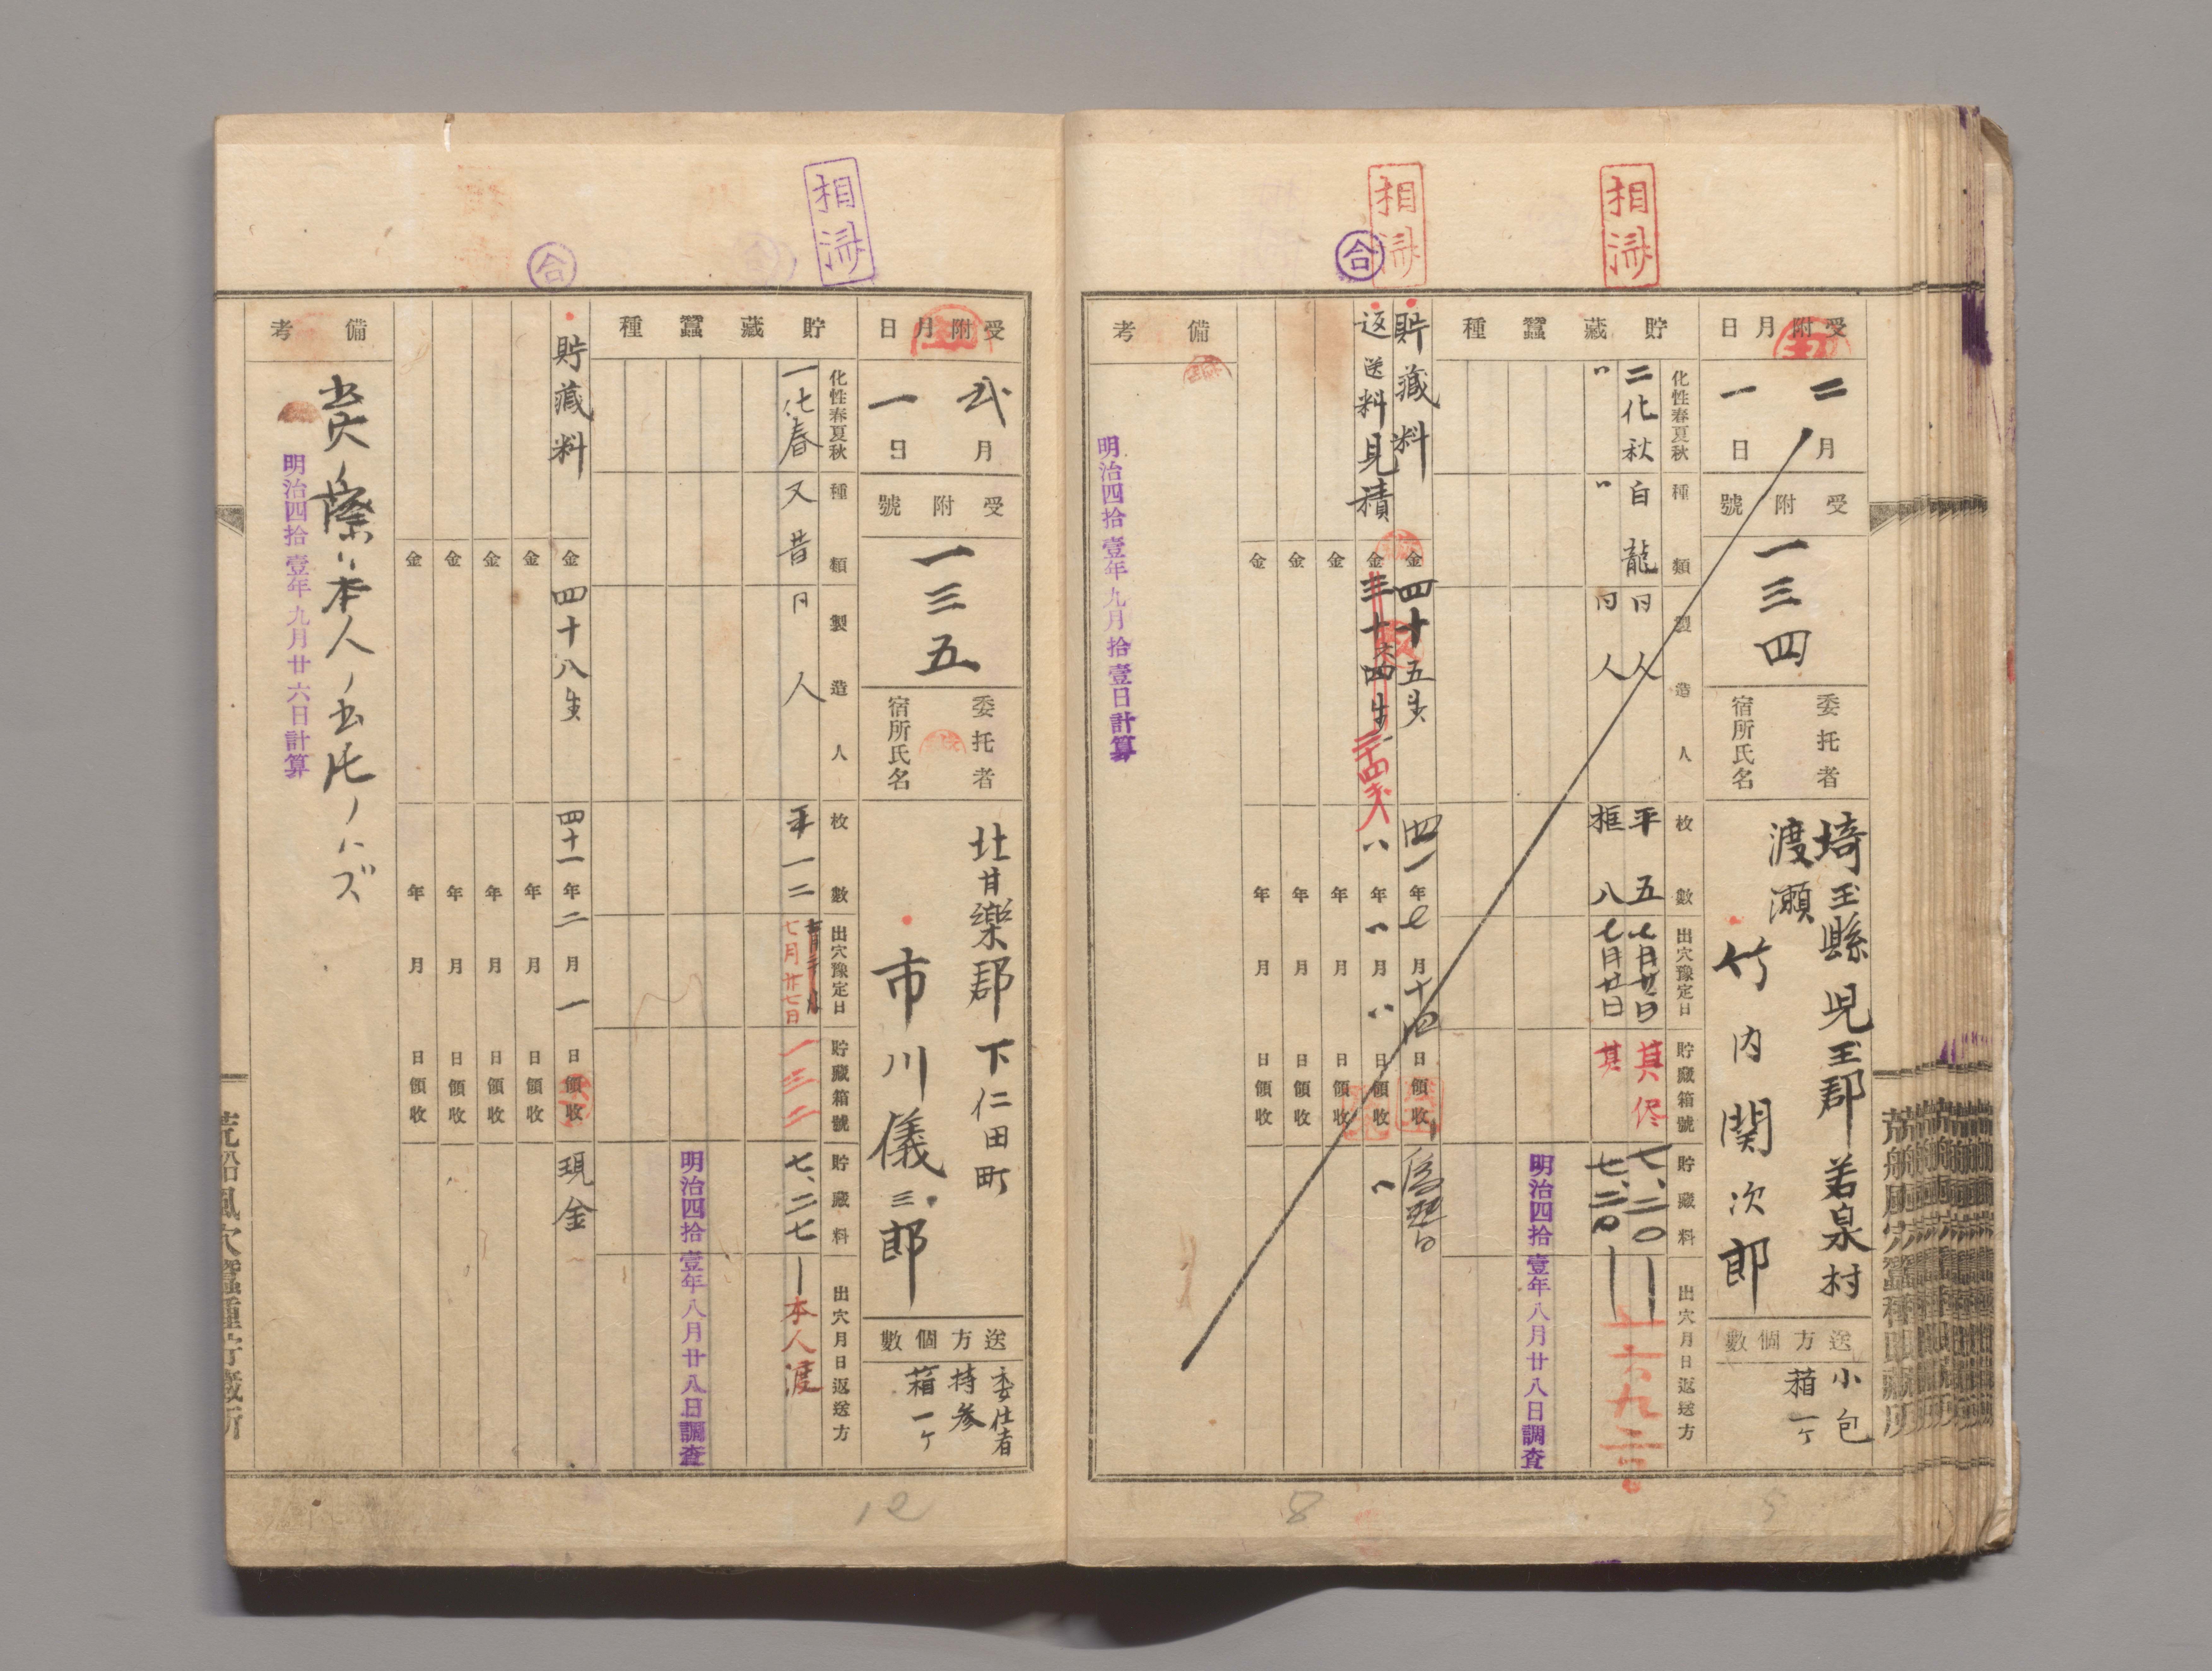 相済
相済
合
受附月日
二月
一日
受附號
一三四
委托者
宿所氏名
埼玉縣児玉郡若泉村
渡瀬
竹内関次郎
送方個數
小包
箱一ケ
貯藏蠶種
化性春夏秋
種類
製造人
枚數
出穴豫定日
貯藏箱號
貯藏料
出穴月日返送方
二化秋
白龍
仝人
平五
七月廿日
其侭
七、二〇
〃
〃
仝人
框八
七月廿日
其
七、二〇
明治四拾壹年八月廿八日調査
貯藏料
金四十五戋
四一年七月十四日領收
為替
返送料見積
金
〃年〃月〃日領收
〃
金
年
月
日領收
金
年
月
日領收
金
年
月
日領收
備考
明治四拾壹年九月拾壹日計算
8
荒船風穴蠶種貯藏所
相済
合
受附月日
弐月
一日
受附號
一三五
委托者
宿所氏名
北甘樂郡下仁田町
市川儀三郎
送方個數
委仕者
持参
箱一ケ
貯藏蠶種
化性春夏秋
種類
製造人
枚數
出穴豫定日
貯藏箱號
貯藏料
出穴月日返送方
一化春
又昔
仝人
平一二
七月廿七日
一三二
七、二七
本人渡
明治四拾壹年八月廿八日調査
貯藏料
金四十八戋
四十一年二月一日領收
現金
金
年
月
日領收
金
年
月
日領收
金
年
月
日領收
金
年
月
日領收
備考
明治四拾壹年九月廿六日計算
12
荒船風穴蠶種貯藏所